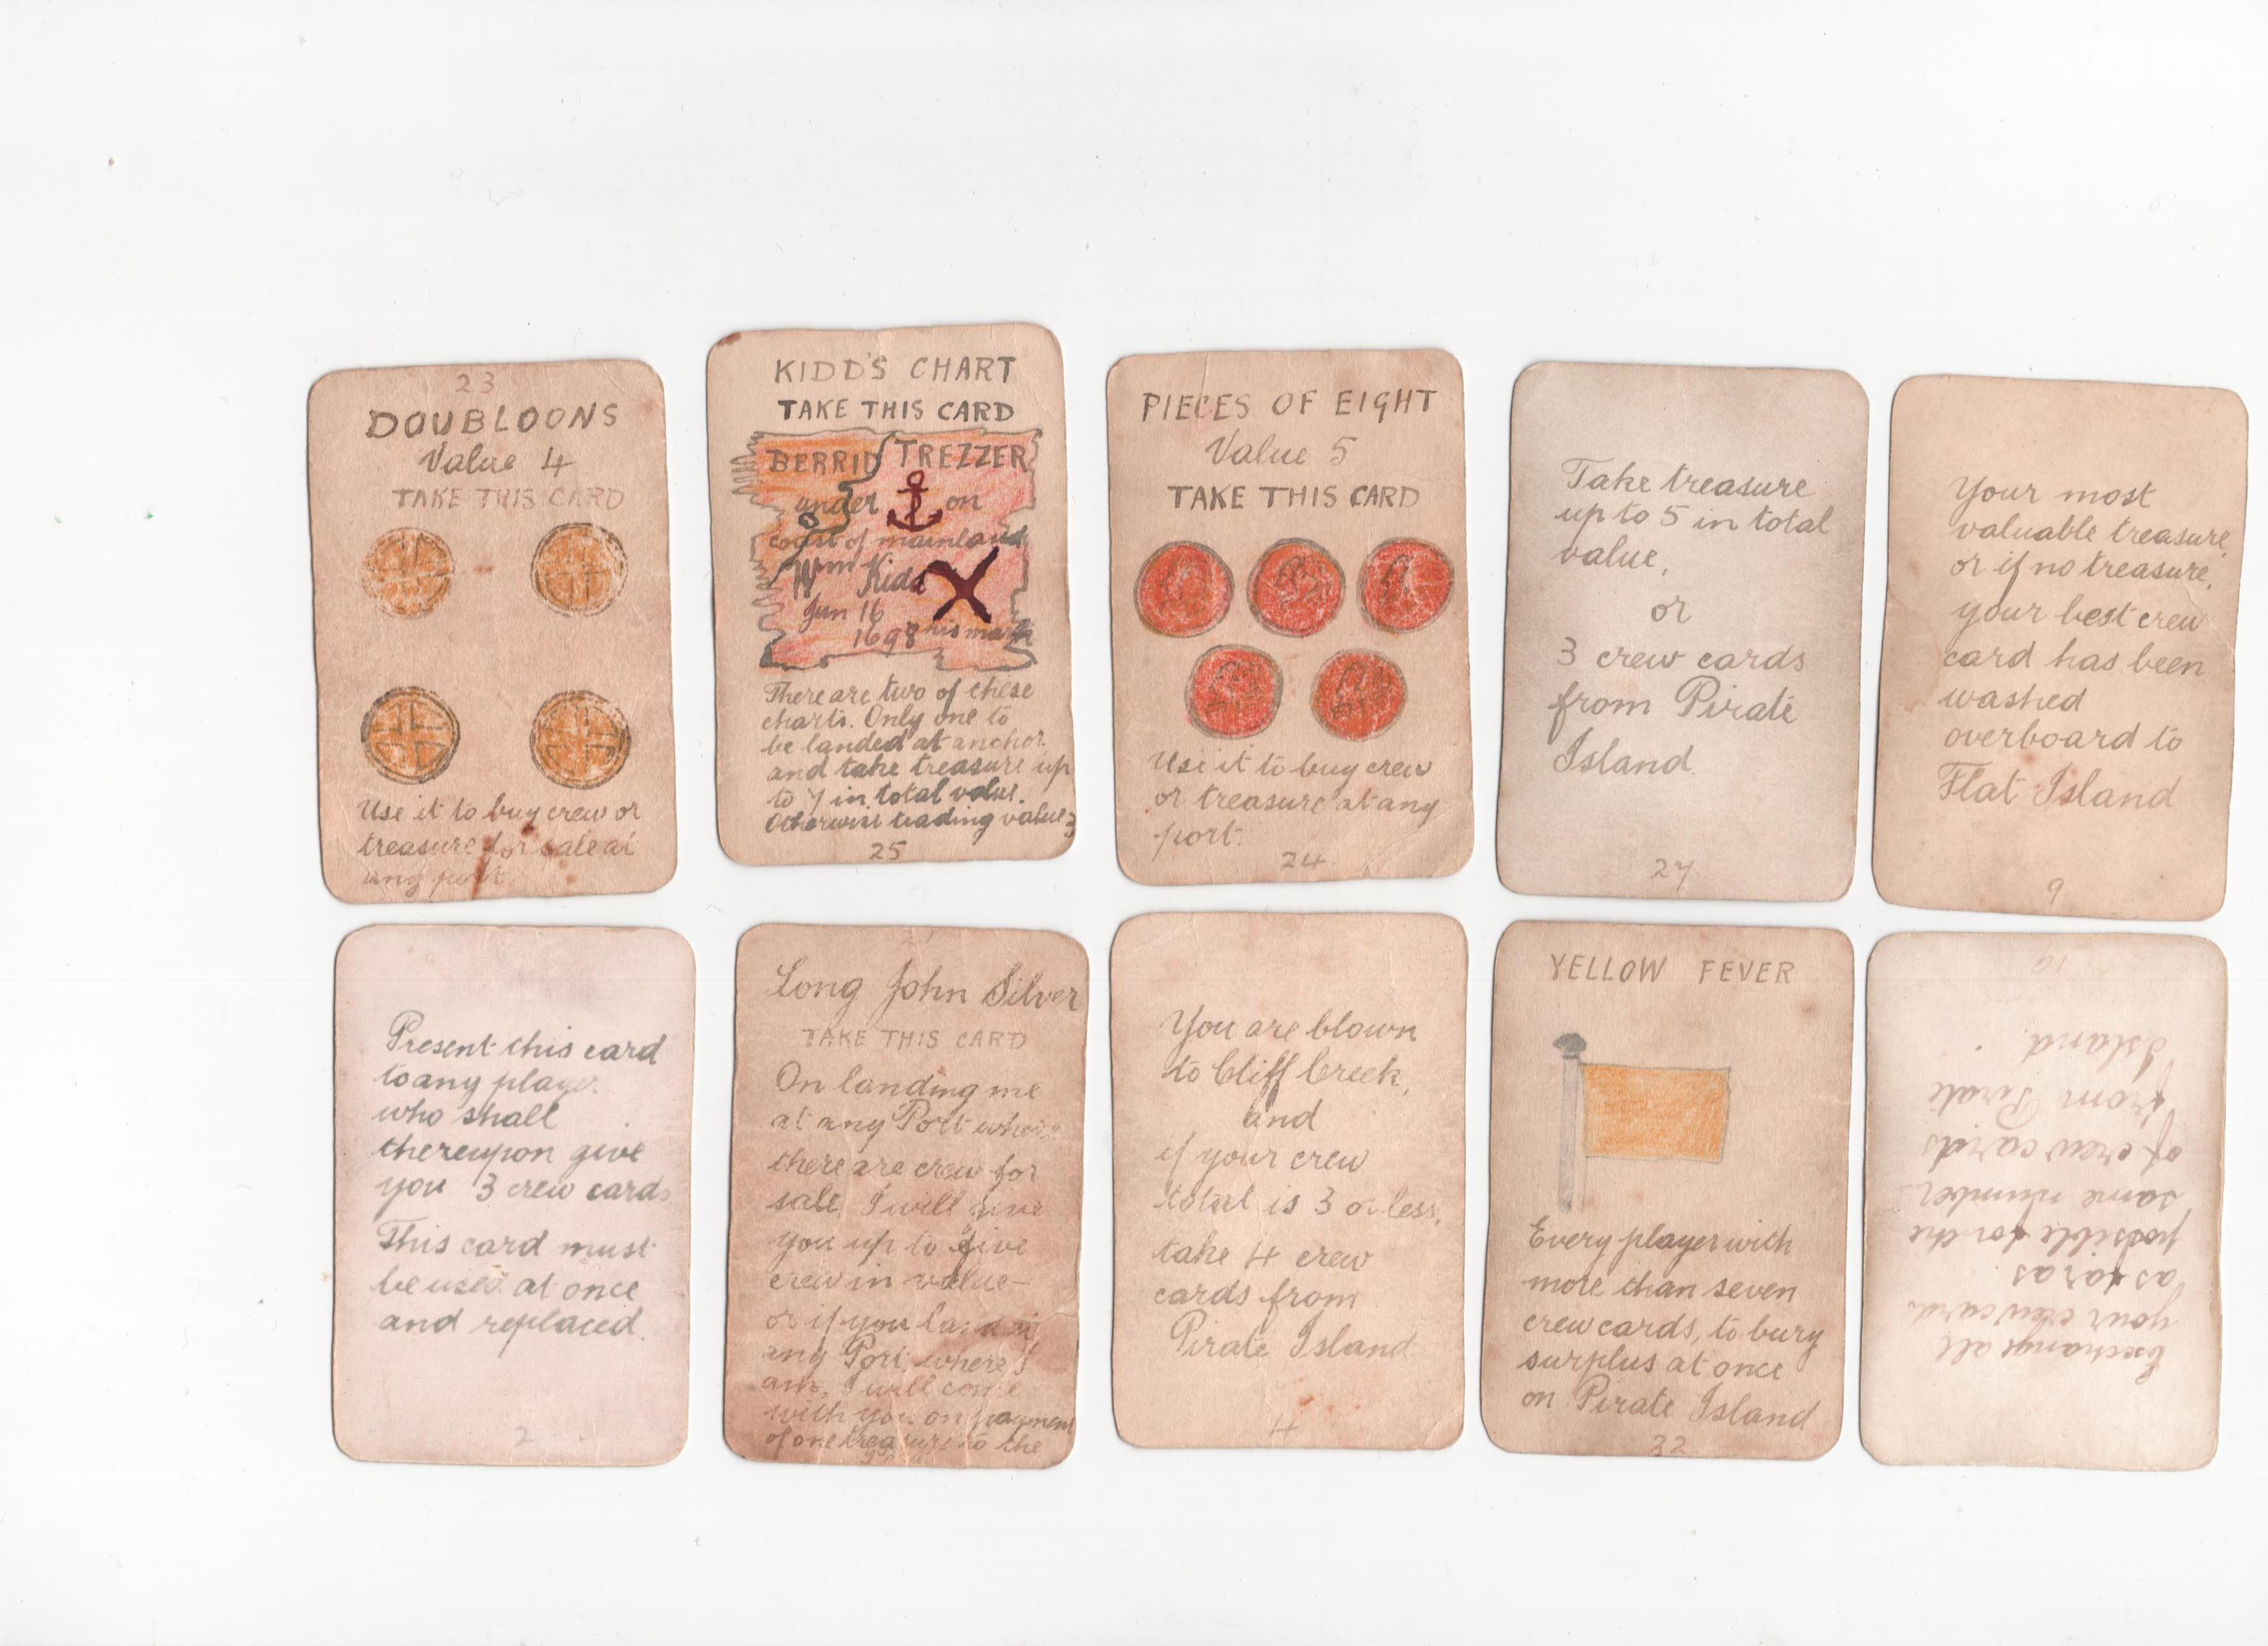 23
DOUBLOONS
Value 4
TAKE THIS CARD
Use it to buy crew or
treasure for sale at
any port
KIDD'S CHART
TAKE THIS CARD
BERRID TREZZER
under on
coast of mainland
Wm Kidd
Jun 16
1698 his mark
There are two of these
charts. Only one to
be landed at anchor
and take treasure up
to 7 in total value.
Otherwise trading value 3
25
PIECES OF EIGHT
Value 5
TAKE THIS CARD
Use it to buy crew
or treasure at any
port.
24
Take treasure
up to 5 in total
value,
or
3 crew cards
from Pirate
Island.
27
Your most
valuable treasure,
or if no treasure,
your best crew
card has been
washed
overboard to
Flat Island
9
Present this card
to any player
who shall
thereupon give
you 3 crew cards
This card must
be used at once
and replaced.
2
Long John Silver
TAKE THIS CARD
On landing me
at any Port where
there are crew for
sale, I will give
you up to five
crew in value—
or if you land at
any Port, where I
am, I will come
with you on payment
of one treasure to the
You are blown
to Cliff Creek,
and
if your crew
total is 3 or less,
take 4 crew
cards from
Pirate Island
4
YELLOW FEVER
Every player with
more than seven
crew cards, to bury
surplus at once
on Pirate Island
22
Exchange all
your crew cards
as far as
possible for the
same number
of crew cards
from Pirate
Island.
19